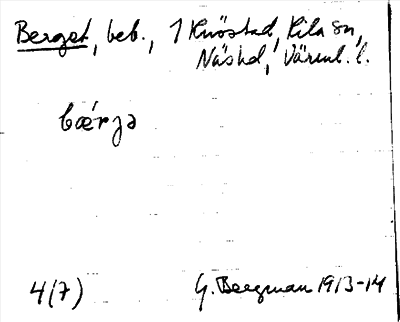 Berget, beb., 1 Knöstad, Kila sn,
Näshd, Värml. l.
bærjə
4(7)
G. Bergman 1913-14